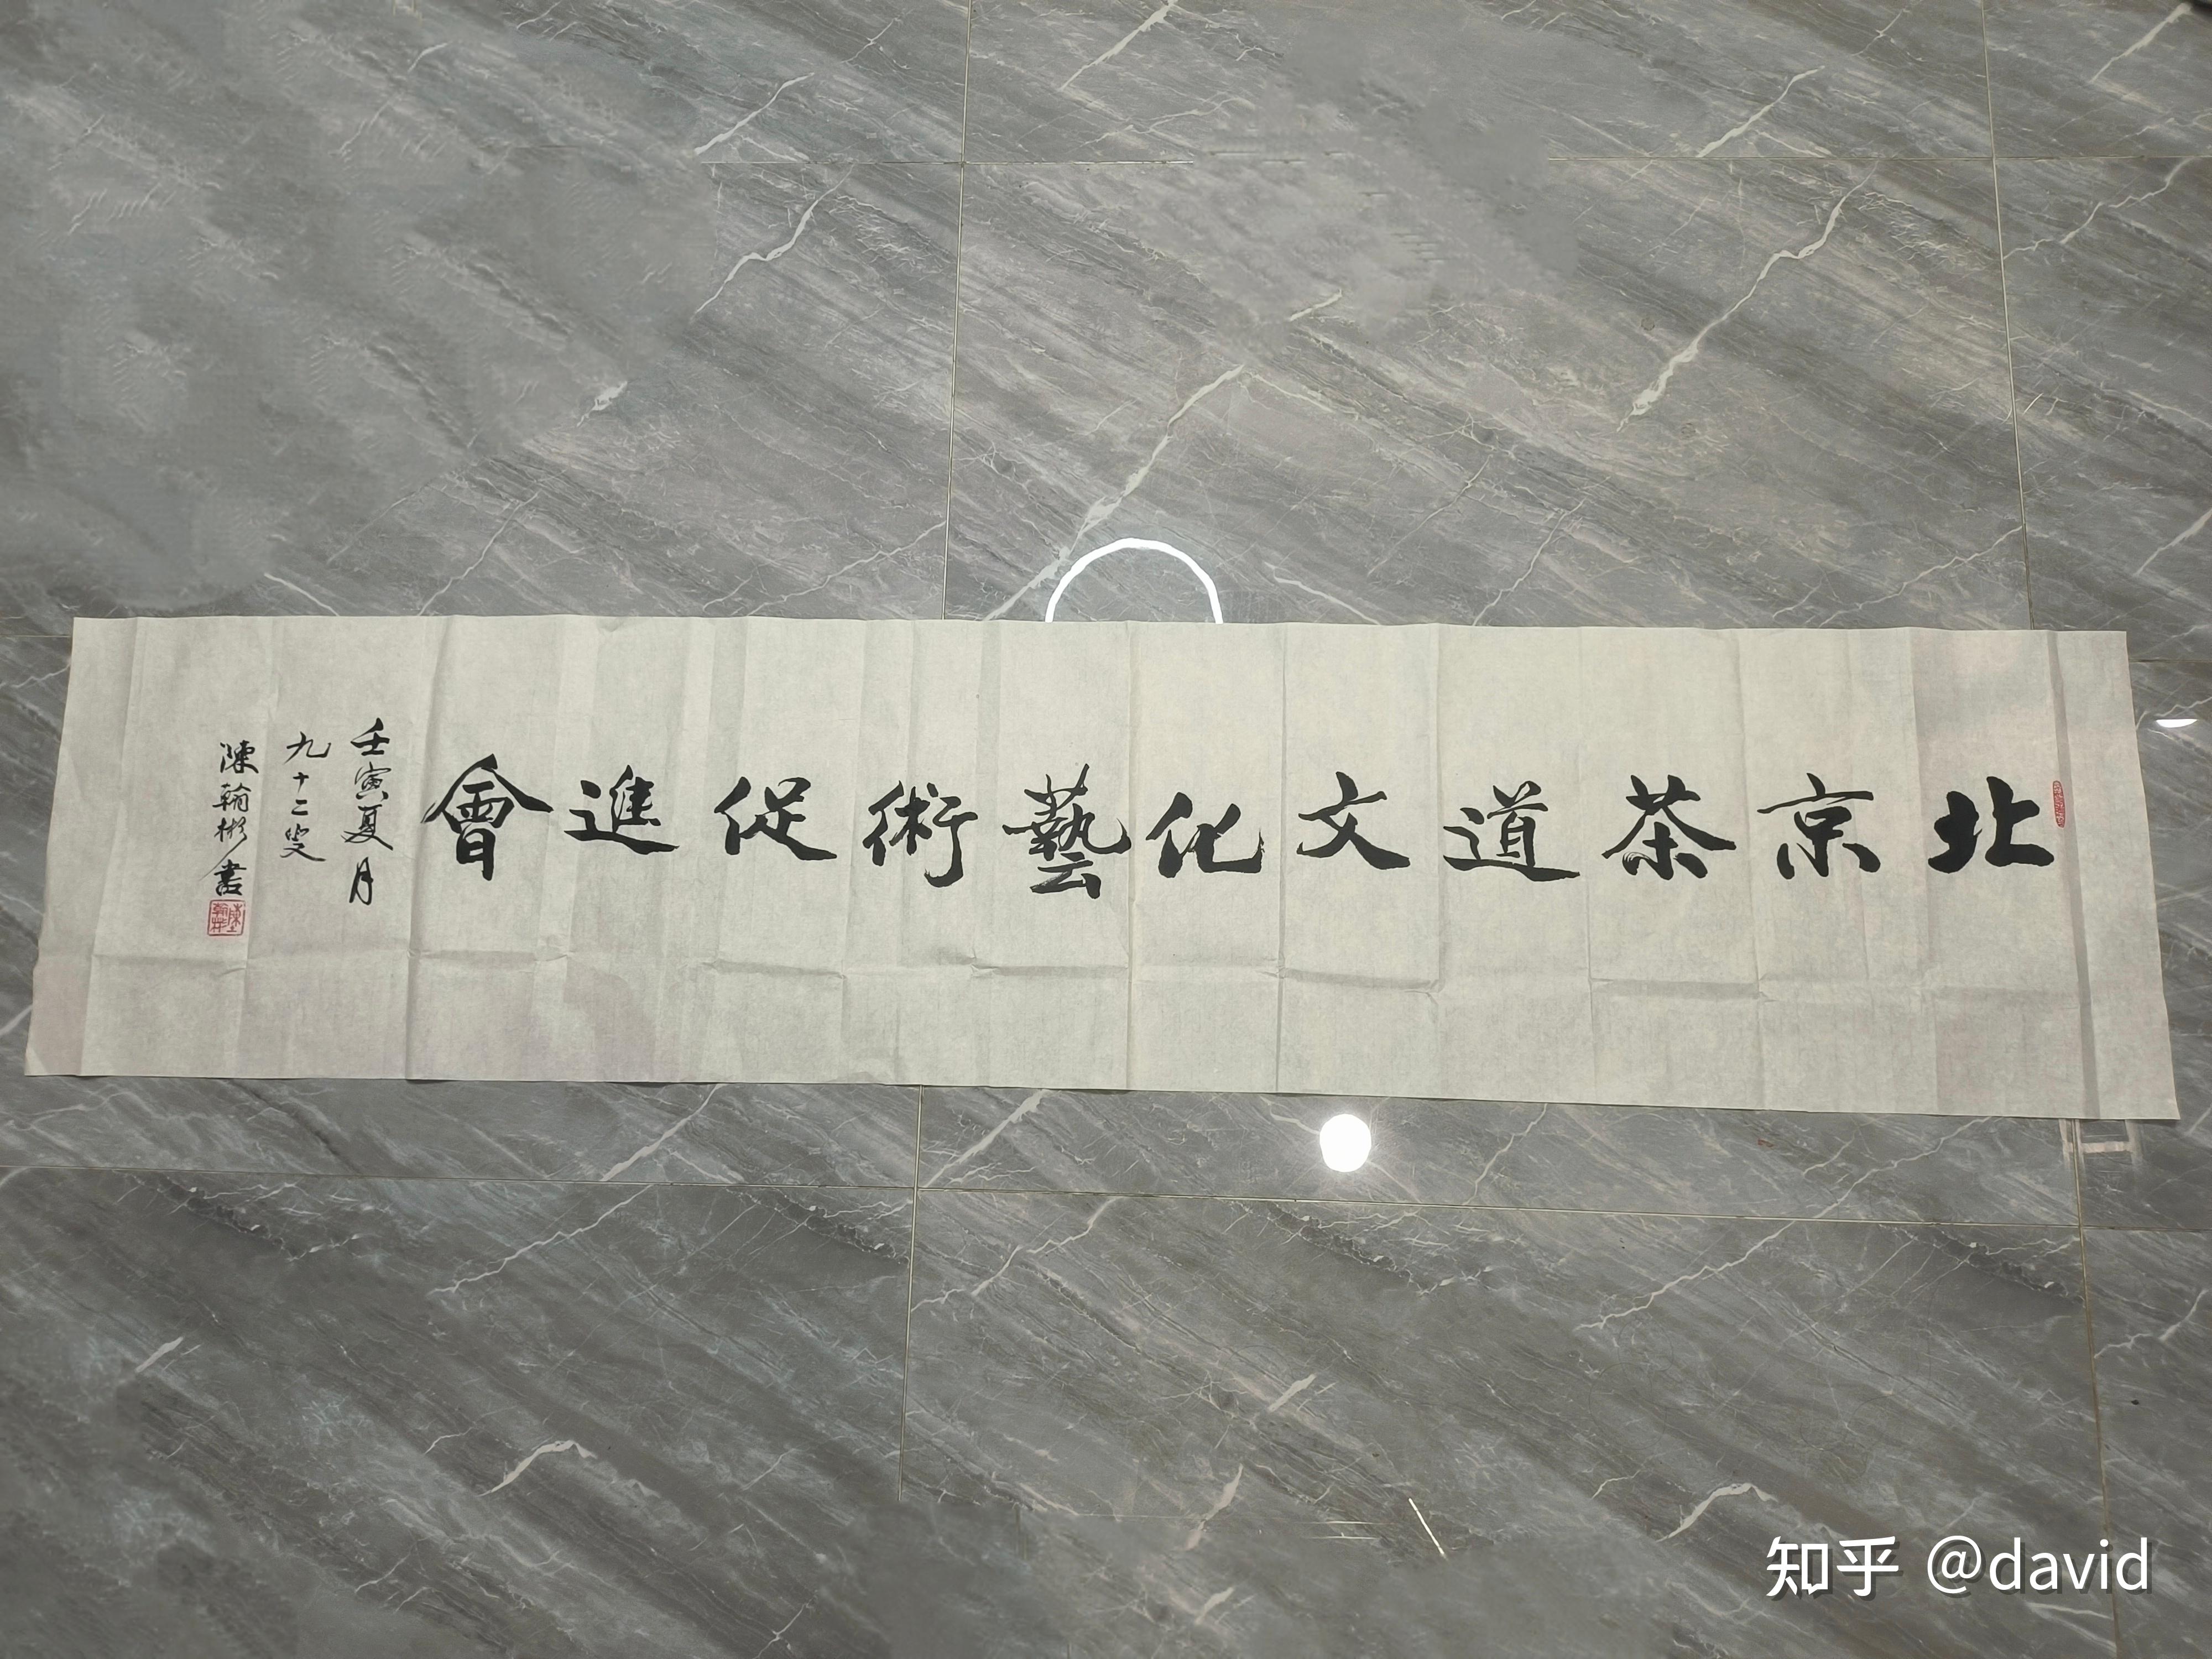 北京茶道文化藝術促進會
壬寅夏月
九十二叟
陳翰彬書
知乎 @david